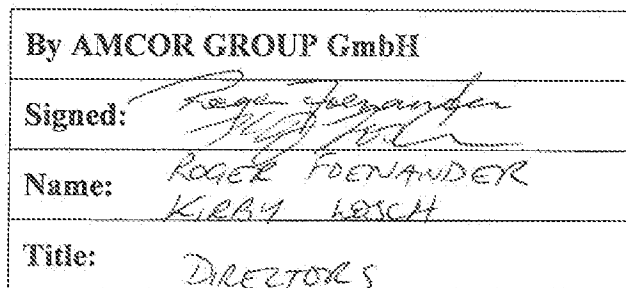 By AMCOR GROUP GmbH
Signed: Roger Foenander
Name: ROGER FOENANDER
KIRBY LOSCH
Title: DIRECTORS